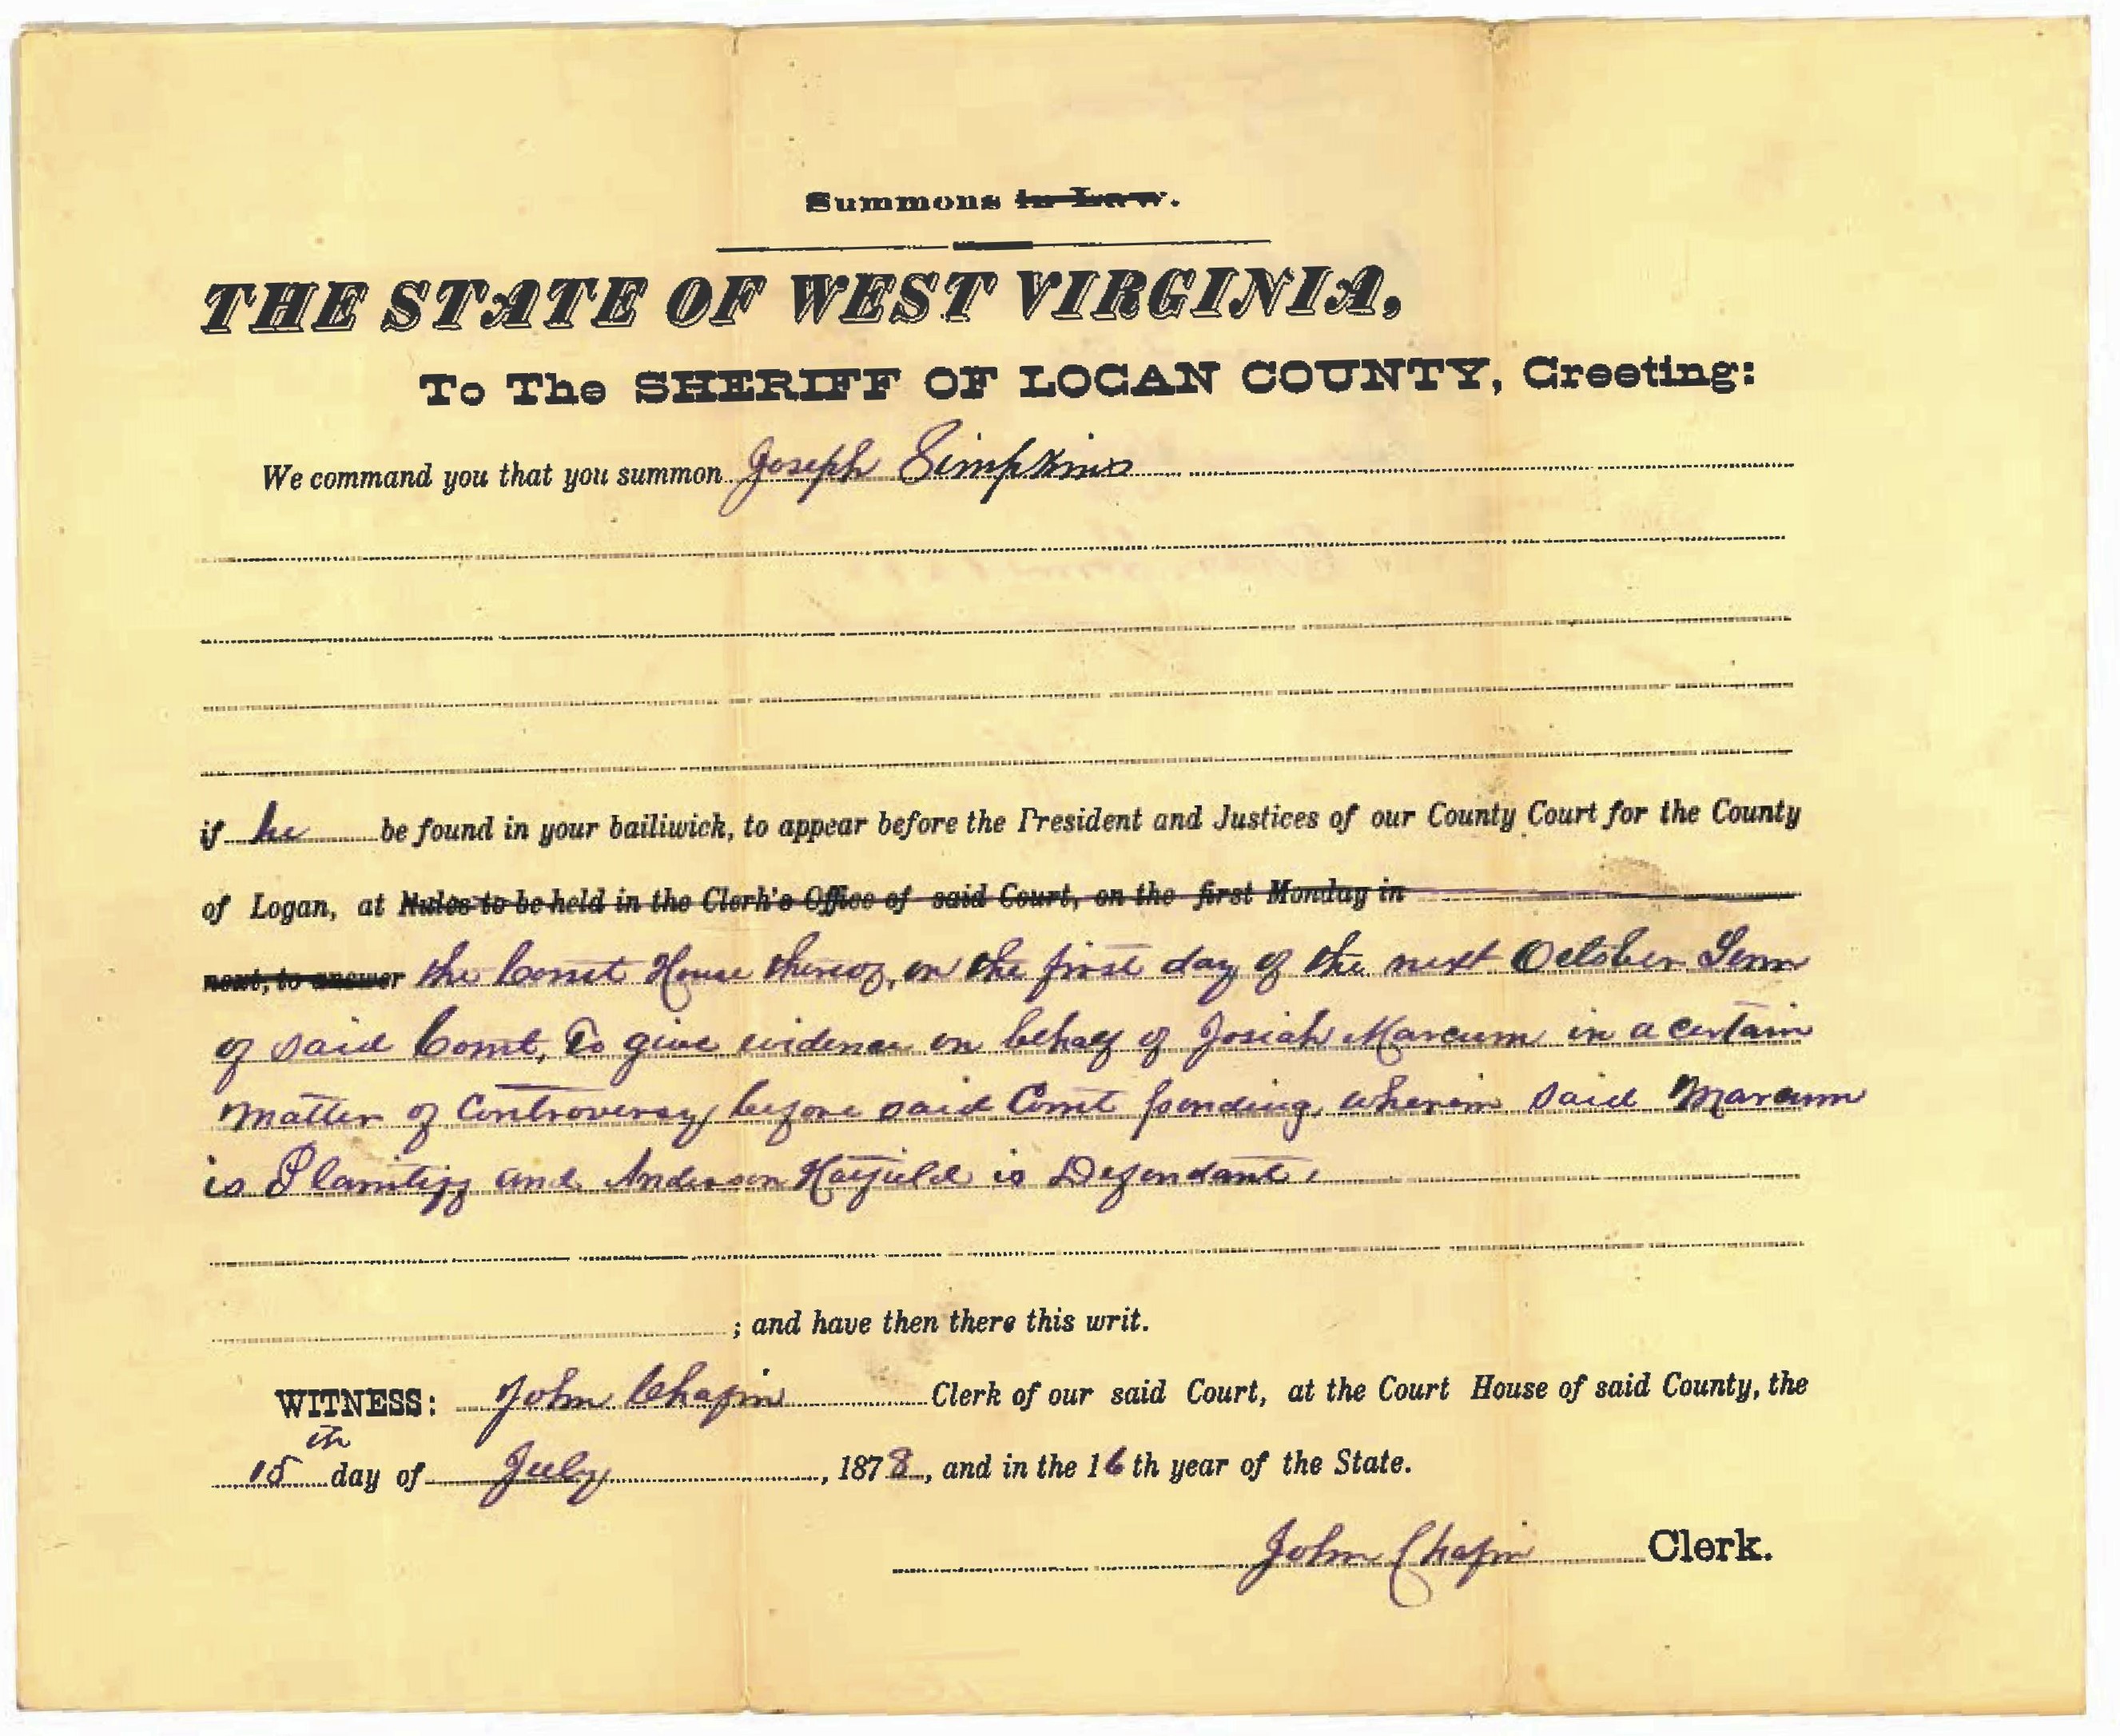 Summons in Law.
THE STATE OF WEST VIRGINIA,
To The SHERIFF OF LOGAN COUNTY, Greeting:
We command you that you summon Joseph Simpkins
if he be found in your bailiwick, to appear before the President and Justices of our County Court for the County
of Logan, at Rules to be held in the Clerk's Office of said Court, on the first Monday in
next, to answer the Court House thereof, on the first day of the next October Term
of said Court, To give evidence on behalf of Josiah Marcum in a certain
Matter of Controversy before said Court pending, wherein said Marcum
is Plaintiff and Anderson Hatfield is Defendant.
; and have then there this writ.
WITNESS: John Chapin Clerk of our said Court, at the Court House of said County, the
15th day of July, 1878, and in the 16th year of the State.
John Chapin Clerk.